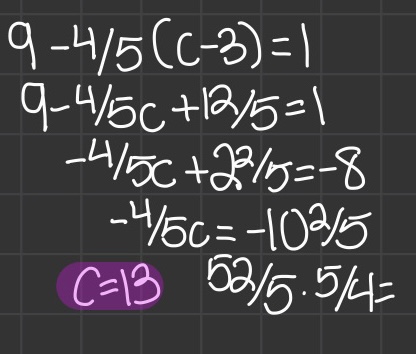 9-4/5(c-3)=1
9-4/5c+12/5=1
-4/5c+2 2/5=-8
-4/5c=-10 2/5
C=13 52/5·5/4=